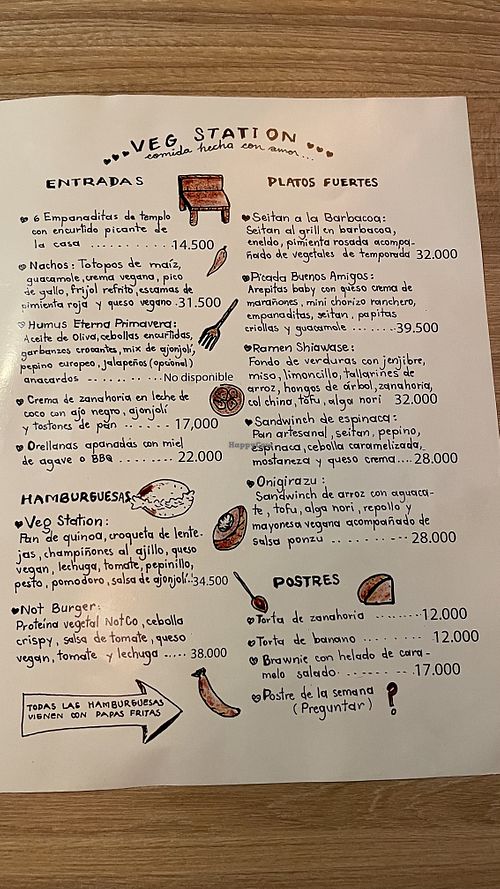 VEG STATION
comida hecha con amor...
ENTRADAS
6 Empanaditas de templo
con encurtido picante de
la casa .......... 14.500
Nachos: Totopos de maíz,
guacamole, crema vegana, pico
de gallo, frijol refrito, escamas de
pimienta roja y queso vegano. 31.500
Humus Eterna Primavera:
Aceite de Oliva, cebollas encurtidas,
garbanzos crocantes, mix de ajonjolí,
pepino europeo, jalapeños (opcional)
anacardos .......... No disponible
Crema de zanahoria en leche de
coco con ajo negro, ajonjolí
y tostones de pan ...... 17,000
Orellanas apanadas con miel
de agave o BBQ ......... 22.000
HAMBURGUESAS
Veg Station:
Pan de quinoa, croqueta de lente-
jas, champiñones al ajillo, queso
vegan, lechuga, tomate, pepinillo,
pesto, pomodoro, salsa de ajonjolí.. 34.500
Not Burger:
Proteína vegetal NotCo, cebolla
crispy, salsa de tomate, queso
vegan, tomate y lechuga ..... 38.000
TODAS LAS HAMBURGUESAS
VIENEN CON PAPAS FRITAS
PLATOS FUERTES
Seitan a la Barbacoa:
Seitan al grill en barbacoa,
eneldo, pimienta rosada acompa-
ñado de vegetales de temporada 32.000
Picada Buenos Amigos:
Arepitas baby con queso crema de
marañones, mini chorizo ranchero,
empanaditas, seitan, papitas
criollas y guacamole ...... 39.500
Ramen Shiawase:
Fondo de verduras con jenjibre,
miso, limoncillo, tallarines de
arroz, hongos de árbol, zanahoria,
col china, tofu, alga nori 32.000
Sandwinch de espinaca:
Pan artesanal, seitan, pepino,
espinaca, cebolla caramelizada,
mostaneza y queso crema.... 28.000
Onigirazu:
Sandwinch de arroz con aguaca-
te, tofu, alga nori, repollo y
mayonesa vegana acompañado de
salsa ponzu .......... 28.000
POSTRES
Torta de zanahoria ........ 12.000
Torta de banano ........ 12.000
Brawnie con helado de cara-
melo salado ........ 17.000
Postre de la semana
(Preguntar) ?
HappyCow